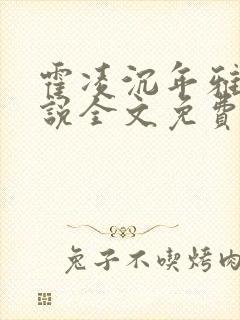 霍凌沉年雅
說全文免費
兔子不喫烤肉